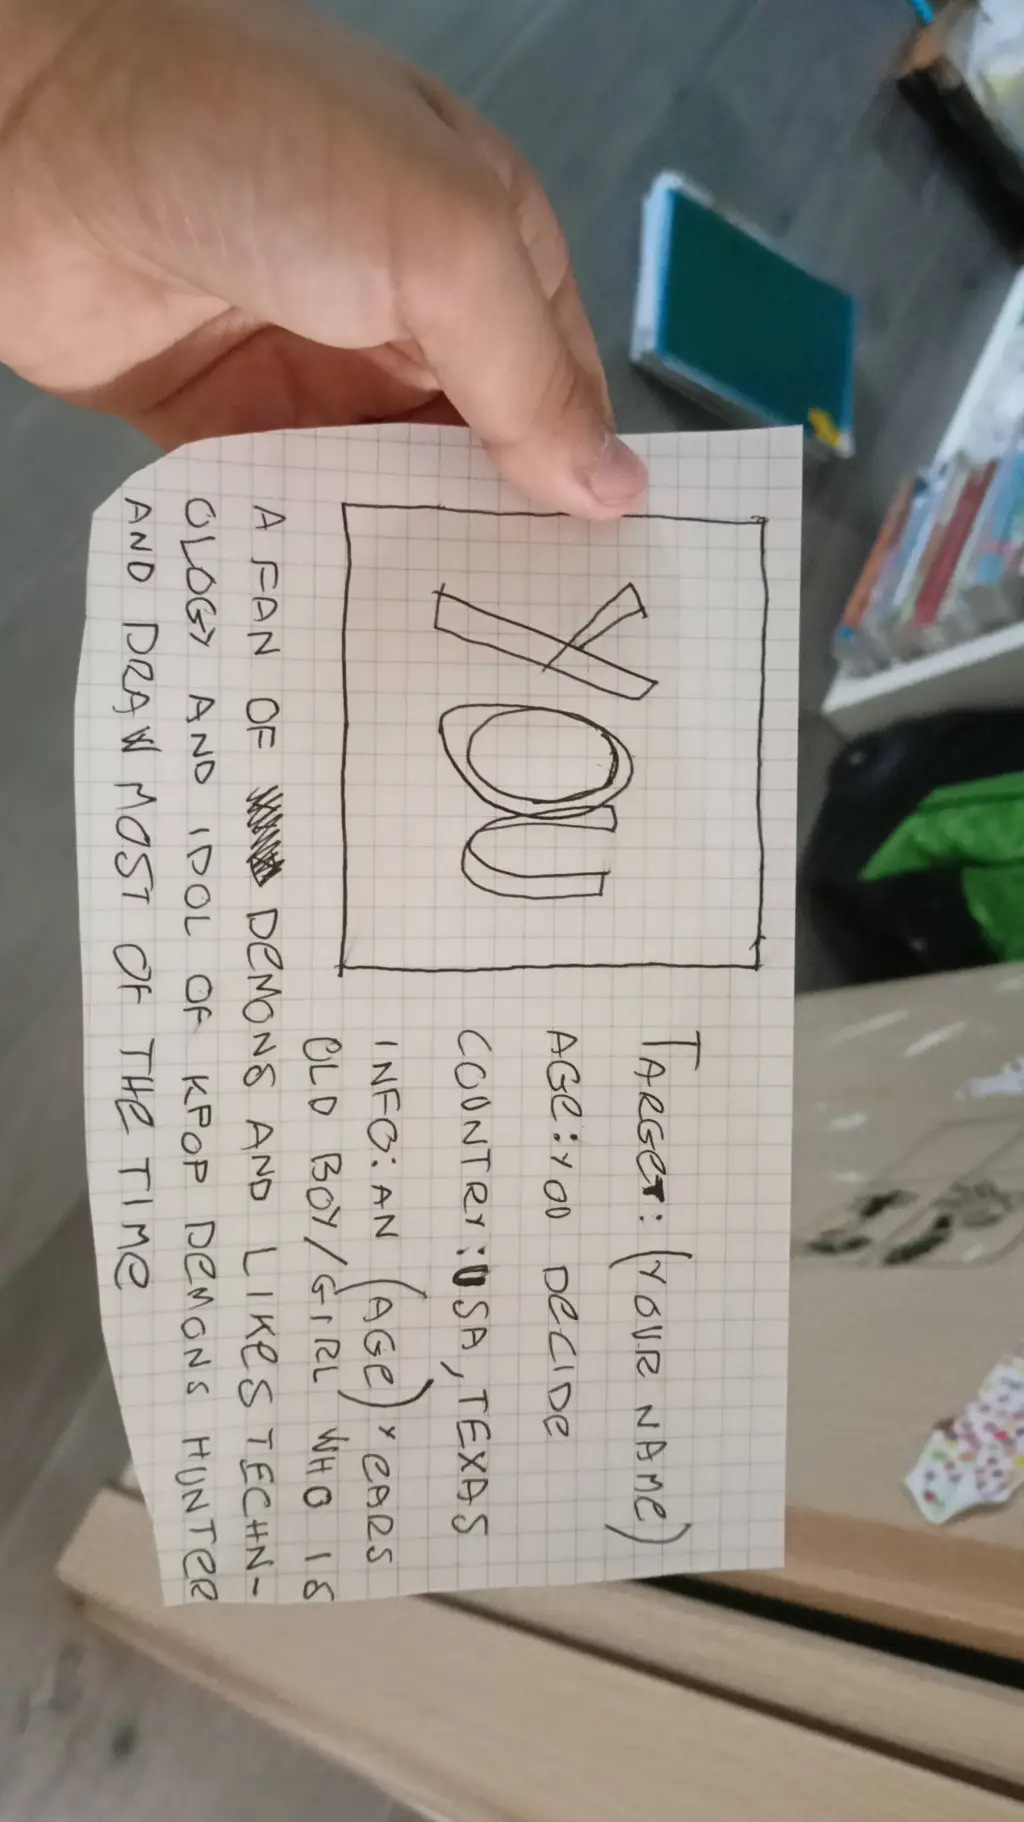 YOU
TARGET: (YOUR NAME)
AGE: YOU DECIDE
CONTRY: USA, TEXAS
INFO: AN (AGE) YEARS
OLD BOY/GIRL WHO IS
A FAN OF DEMONS AND LIKES TECHN-
OLOGY AND IDOL OF KPOP DEMONS HUNTER
AND DRAW MOST OF THE TIME